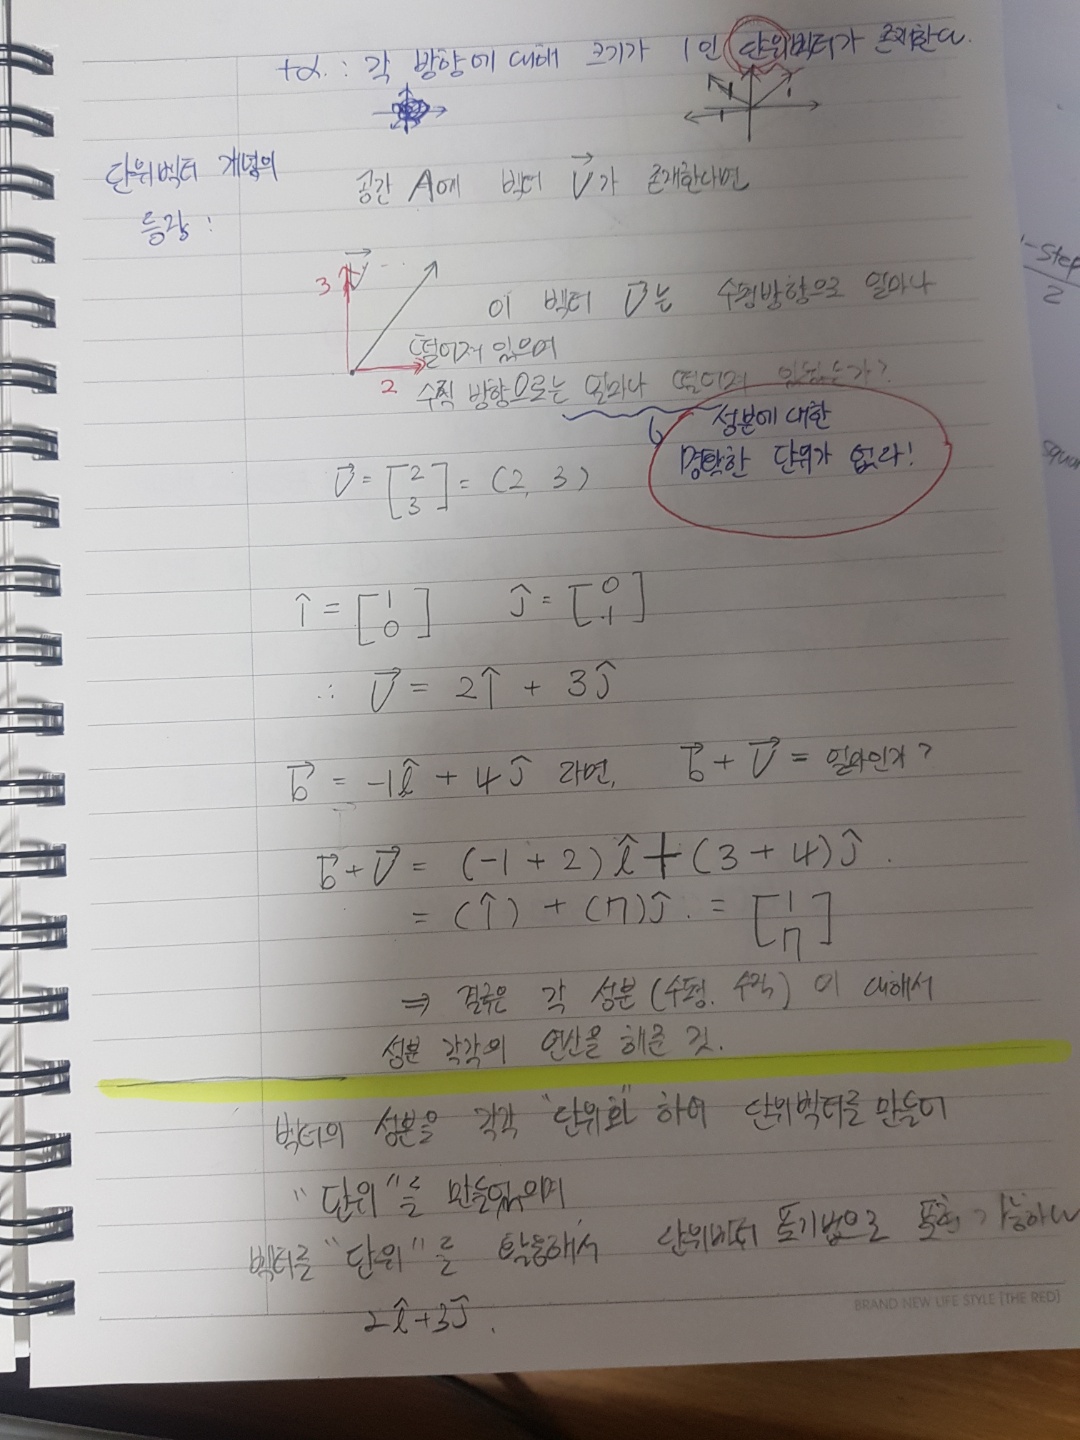 +α. : 각 방향에 대해 크기가 1인 단위벡터가 존재한다.
단위벡터 개념의
등장 :
공간 A에 벡터 V가 존재한다면
3
V
이 벡터 V는 수평방향으로 얼마나
떨어져 있으며
2
수직 방향으로는 얼마나 떨어져 있는가?
성분에 대한
명확한 단위가 없다!
V = [2 3] = (2, 3)
î = [1 0] ĵ = [0 1]
∴ V = 2î + 3ĵ
b = -1î + 4ĵ 라면, b + V = 얼마인가?
b + V = (-1 + 2)î + (3 + 4)ĵ.
= (î) + (7)ĵ. = [1 7]
⇒ 결국은 각 성분(수평. 수직)에 대해서
성분 각각의 연산을 해준 것.
벡터의 성분을 각각 "단위화" 하여 단위벡터를 만들어
"단위"를 만들었으며
벡터를 "단위"를 활용해서 단위벡터 표기법으로 표현 가능하다
2î+3ĵ.
BRAND NEW LIFE STYLE [THE RED]
-Step
2
squar